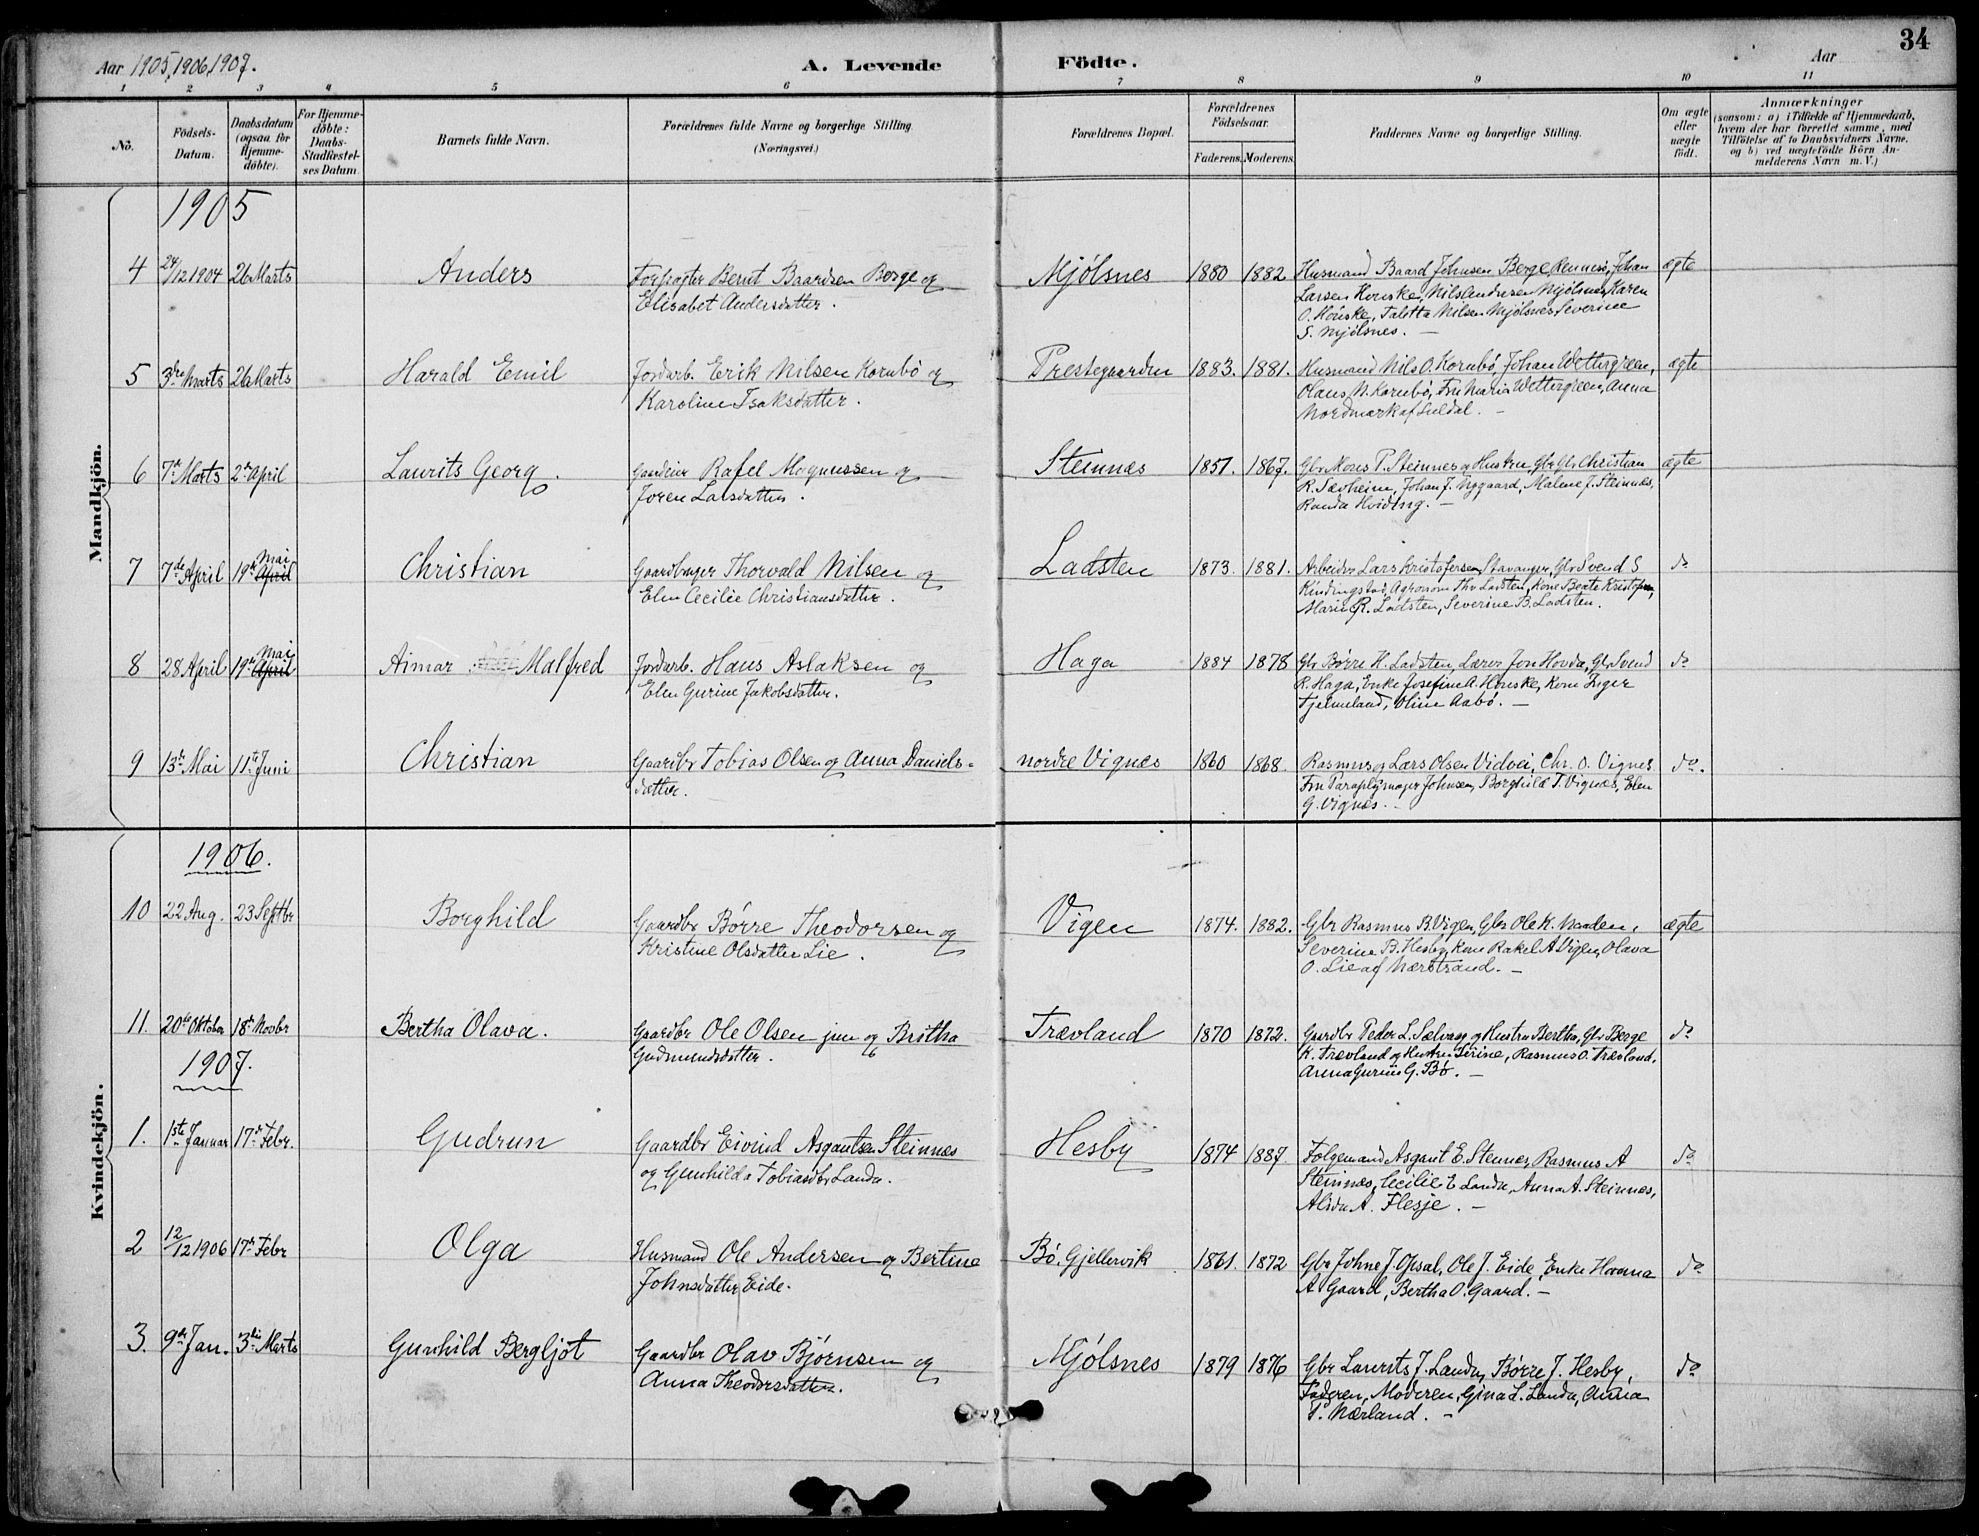 34
Aar 1905, 1906, 1907. A. Levende Födte. Aar
1 2 3 4 5 6 7 8 9 10 11
No. Födsels-Datum. Daabsdatum (ogsaa for Hjemme-döbte). For Hjemme-döbte: Daabs-Stadfæstel-ses Datum. Barnets fulde Navn. Forældrenes fulde Navne og borgerlige Stilling. (Næringsvei.) Forældrenes Bopæl. Forældrenes Födselsaar. Faderens. Moderens. Faddernes Navne og borgerlige Stilling. Om ægte eller uægte födt. Anmærkninger (saasom: a) i Tilfælde af Hjemmedaab, hvem der har forrettet samme, med Tilföielse af to Daabsvidners Navne, og b) ved uægtefödte Börn An-melderens Navn m. V.)
Mandkjön.
1905
4 24/12 1904 26 Marts Anders Forpagter Bernt Baardsen Berge og Mjølsnes 1880 1882 Husmand Baard Johnsen Berge Rennesø, Johan ægte
Elisabet Andersdatter. Larsen Hauske, Nils Andresen Mjølsnes, Karen
O. Hauske, Taletta Nilsen Mjølsnes, Severine
S. Mjølsnes. —
5 3die Marts 26 Marts Harald Emil Jordarb. Erik Nilsen Kornbø og Prestegaarden 1883. 1881. Husmand Nils O. Kornbø, Johan Wettergreen, ægte
Karoline Isaksdatter. Olaus N. Kornbø, Fru Maria Wettergreen, Anna
Nordmark af Suldal. —
6 7de Marts 2den April Laurits Georg. Gaardeier Rafel Magnussen og Steinnæs 1851. 1867. Gbr Mons P. Steinnes og Hustru, Gbr Christian ægte
Joren Larsdatter. R. Sævheim, Johan J. Nygaard, Malene J. Steinnæs,
Randa Hviding. —
7 7de April 19de April Mai Christian Gaardbruger Thorvald Nilsen og Ladsten 1873. 1881. Arbeider Lars Kristofersen, Stavanger, Gbr Svend S do
Elen Cecilie Christiansdatter. Kindingstad, Agronom Thv Ladsten, Kone Beate Kristofersen,
Marie R. Ladsten, Severine B. Ladsten.
8 28 April 19de April Mai Aimar Malfred Jordarb. Hans Aslaksen og Haga 1884 1878 Gbr Børre H. Ladsten, Lærer Jon Hovda, Gbr Svend do
Elen Gurine Jakobsdatter. R. Haga, Enke Josefine A. Hauske, Kone Inger
Tjelmeland, Oline Aabø. —
9 13de Mai 11te Juni Christian Gaardbr Tobias Olsen og Anna Daniels- nordre Vignæs 1860 1868. Rasmus og Lars Olsen Vidvei, Chr. O. Vignes do.
datter. Fru Paraplymager Johnsen, Borghild T. Vignæs, Elen
G. Vignæs. —
Kvindekjön.
1906.
10 22 Aug. 23 Septbr Borghild Gaardbr Børre Theodorsen og Vigen 1874. 1882. Gbr Rasmus B. Vigen, Gbr Ole K. Naaden, ægte
Kristine Olsdatter Lie. Severine B. Hesby, Kone Rakel A Vigen, Olava
O. Lie af Nærstrand. —
11. 20de Oktober 18de Novbr Bertha Olava. Gaardbr Ole Olsen jun og Britha Trævland 1870 1872. Gaardbr Peder L. Sælvaag og Hustru Bertha, Gbr Berge do
Gudmundsdatter. K. Trævland og Hustru Serine, Rasmus O. Trævland,
Anna Gurine G. Bø. —
1907.
1. 1ste Januar 17de Febr. Gudrun Gaardbr Eivind Asgautsen Steinnæs Hesby 1874 1887. Følgemand Asgaut E. Steinnæs, Rasmus A do
og Gunhilda Tobiasdtr Landa. Steinnæs, Cecilie E Landa, Anna A. Steinnæs,
Alida A. Flesje. —
2 12/12 1906 17de Febr Olga Husmand Ole Andersen og Bertine Bø. Gjellervik 1861. 1872 Gbr Johne J. Opsal, Ole J. Eide, Enke Hanna do
Johnsdatter Eide. A Gaard, Bertha O. Gaard. —
3. 9de Jan. 3die Marts Gunhild Bergljot Gaardbr Olav Bjørnsen og Mjølsnes 1879 1876 Gbr Laurits J. Landa, Børre J. Hesby, do
Anna Theodorsdatter. Faderen, Moderen, Gina L. Landa, Anna
T. Nærland. —